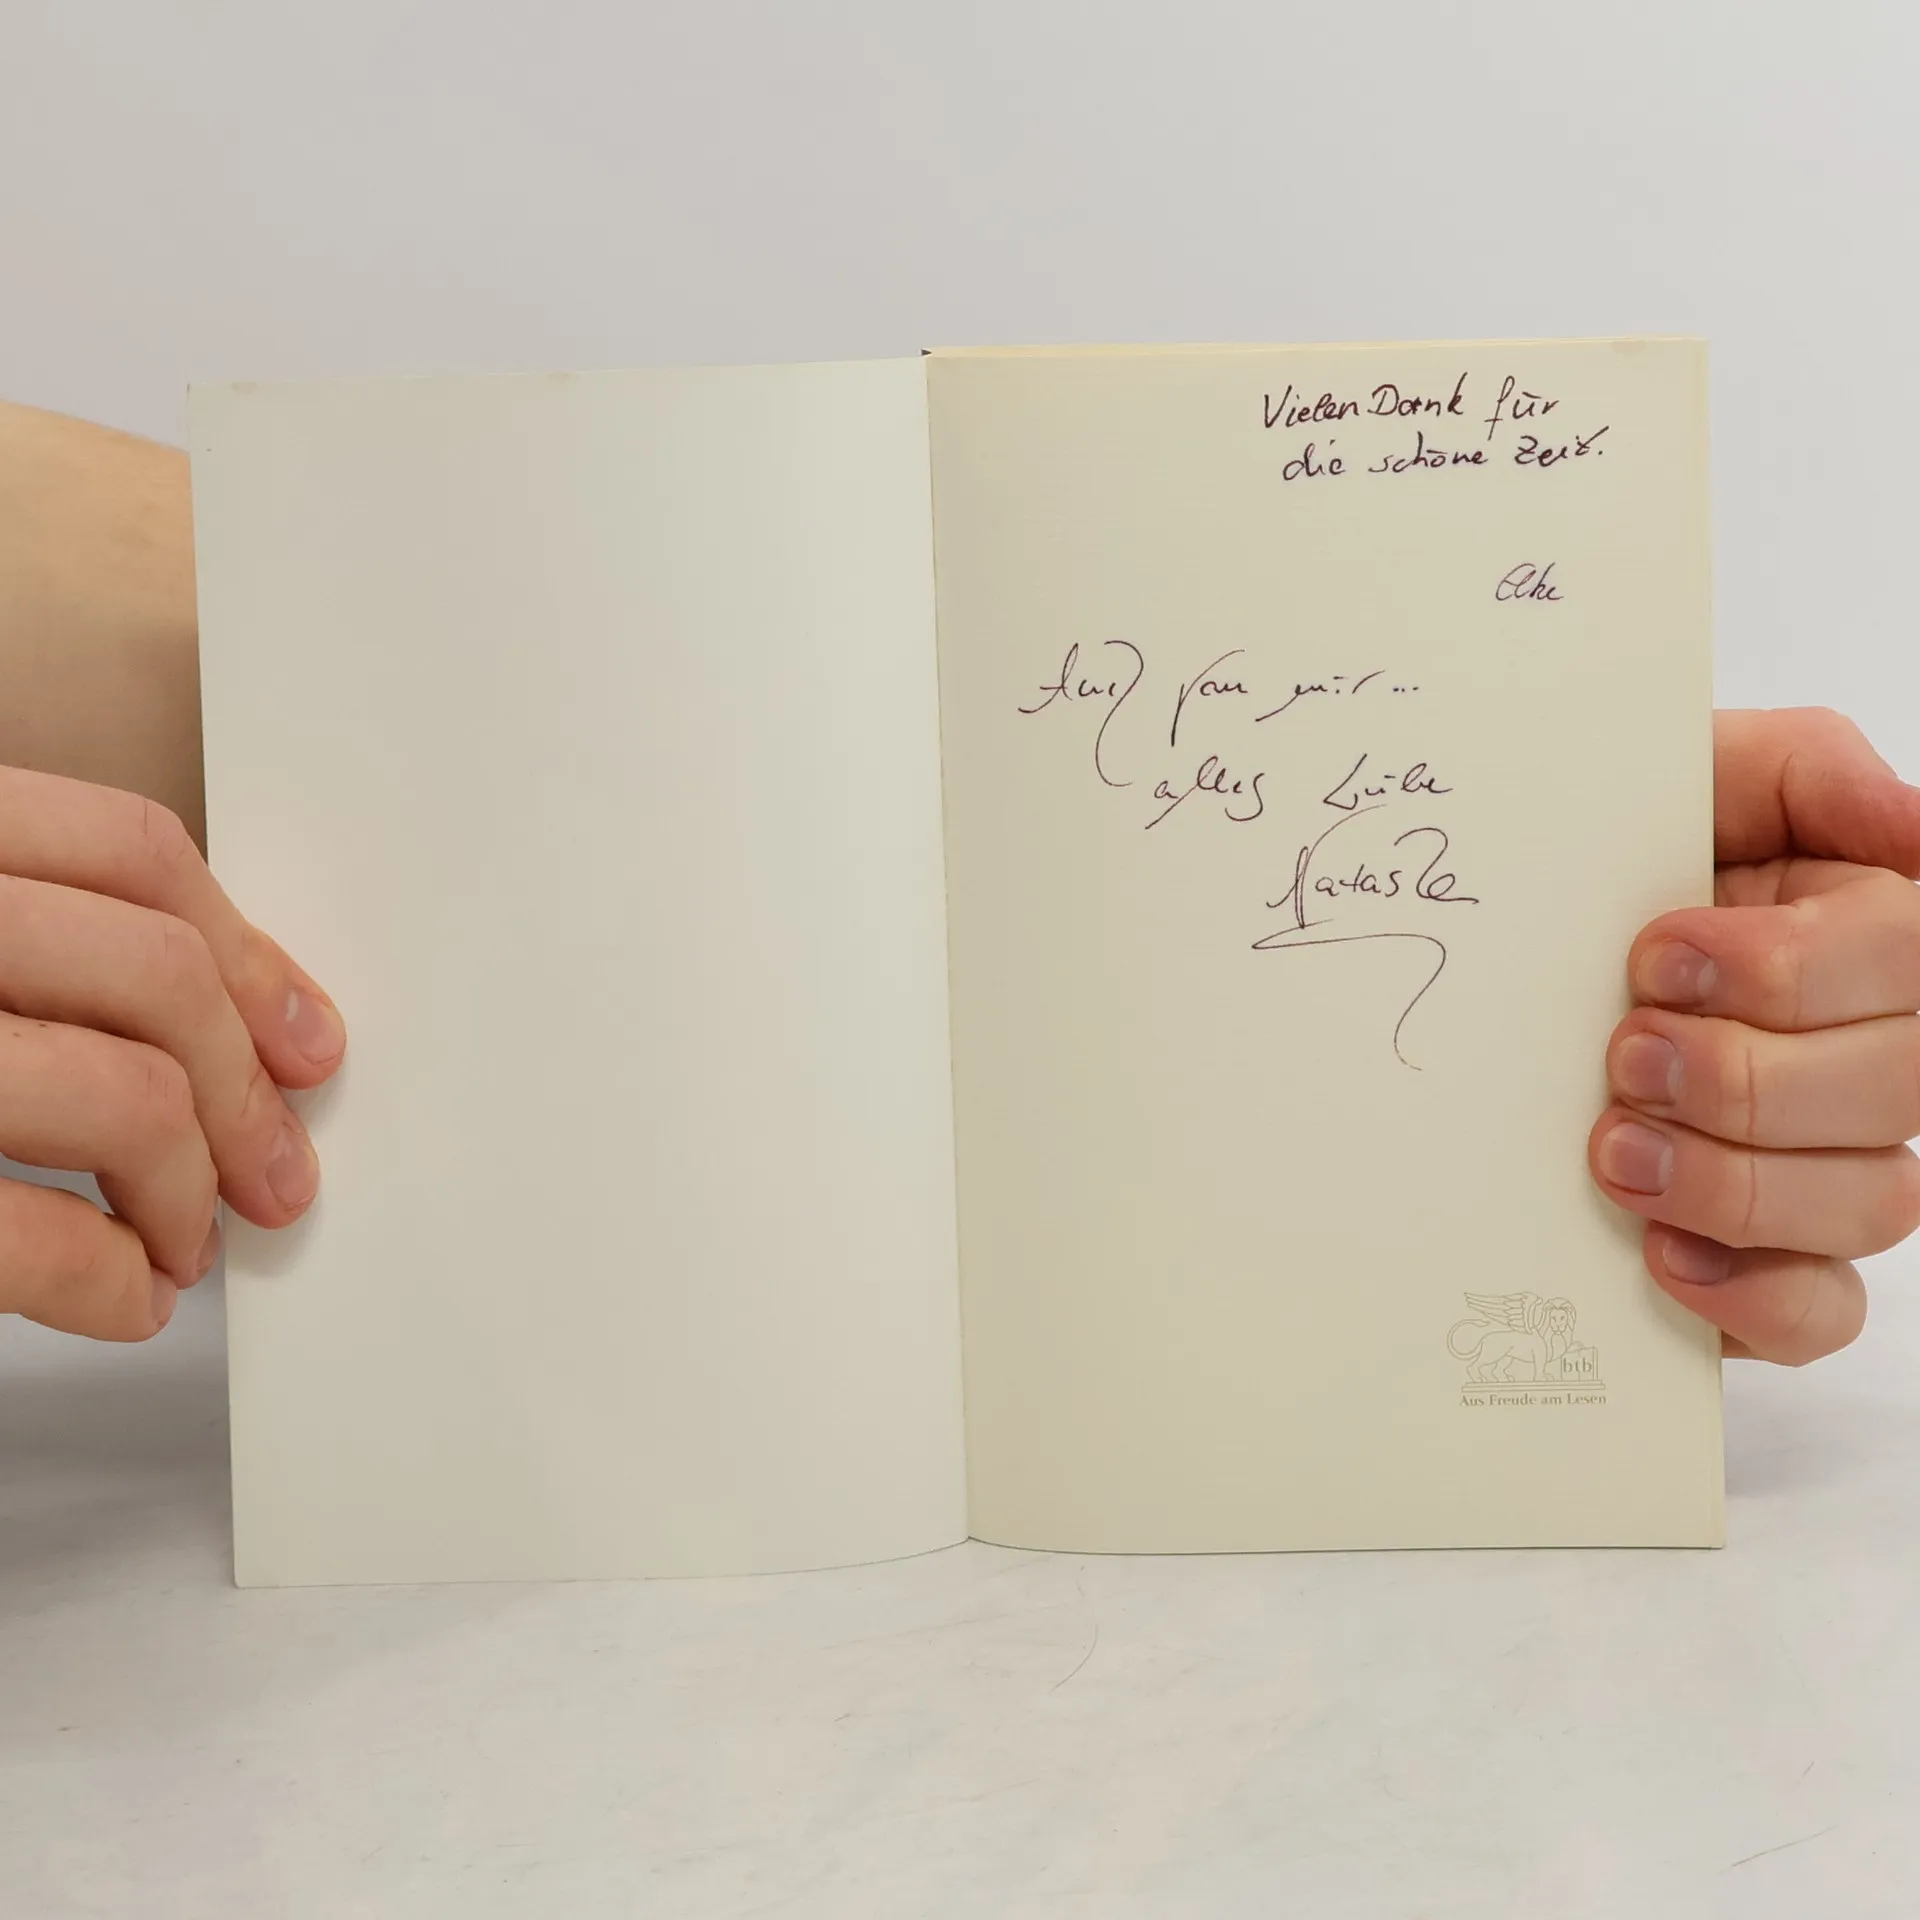 Vielen Dank für
die schöne Zeit.
Elke
Auch von mir...
alles Liebe
Natascha
btb
Aus Freude am Lesen